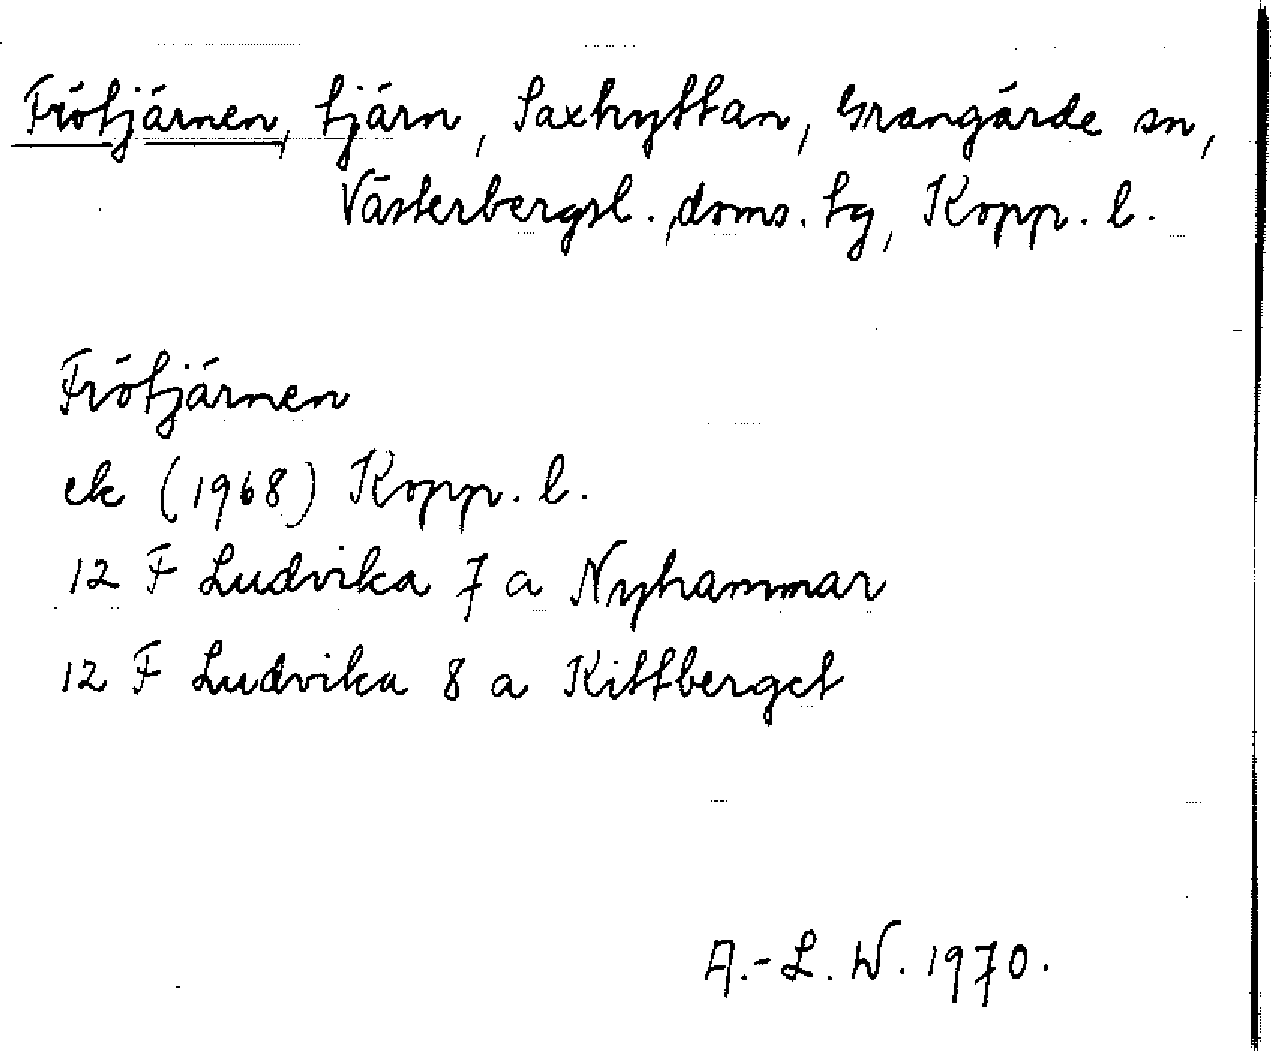 Frötjärnen, tjärn, Saxhyttan, Grangärde sn,
Västerbergsl. doms. tg, Kopp. l.
Frötjärnen
ek (1968) Kopp. l.
12 F Ludvika 7 a Nyhammar
12 F Ludvika 8 a Kittberget
A.-L. W. 1970.